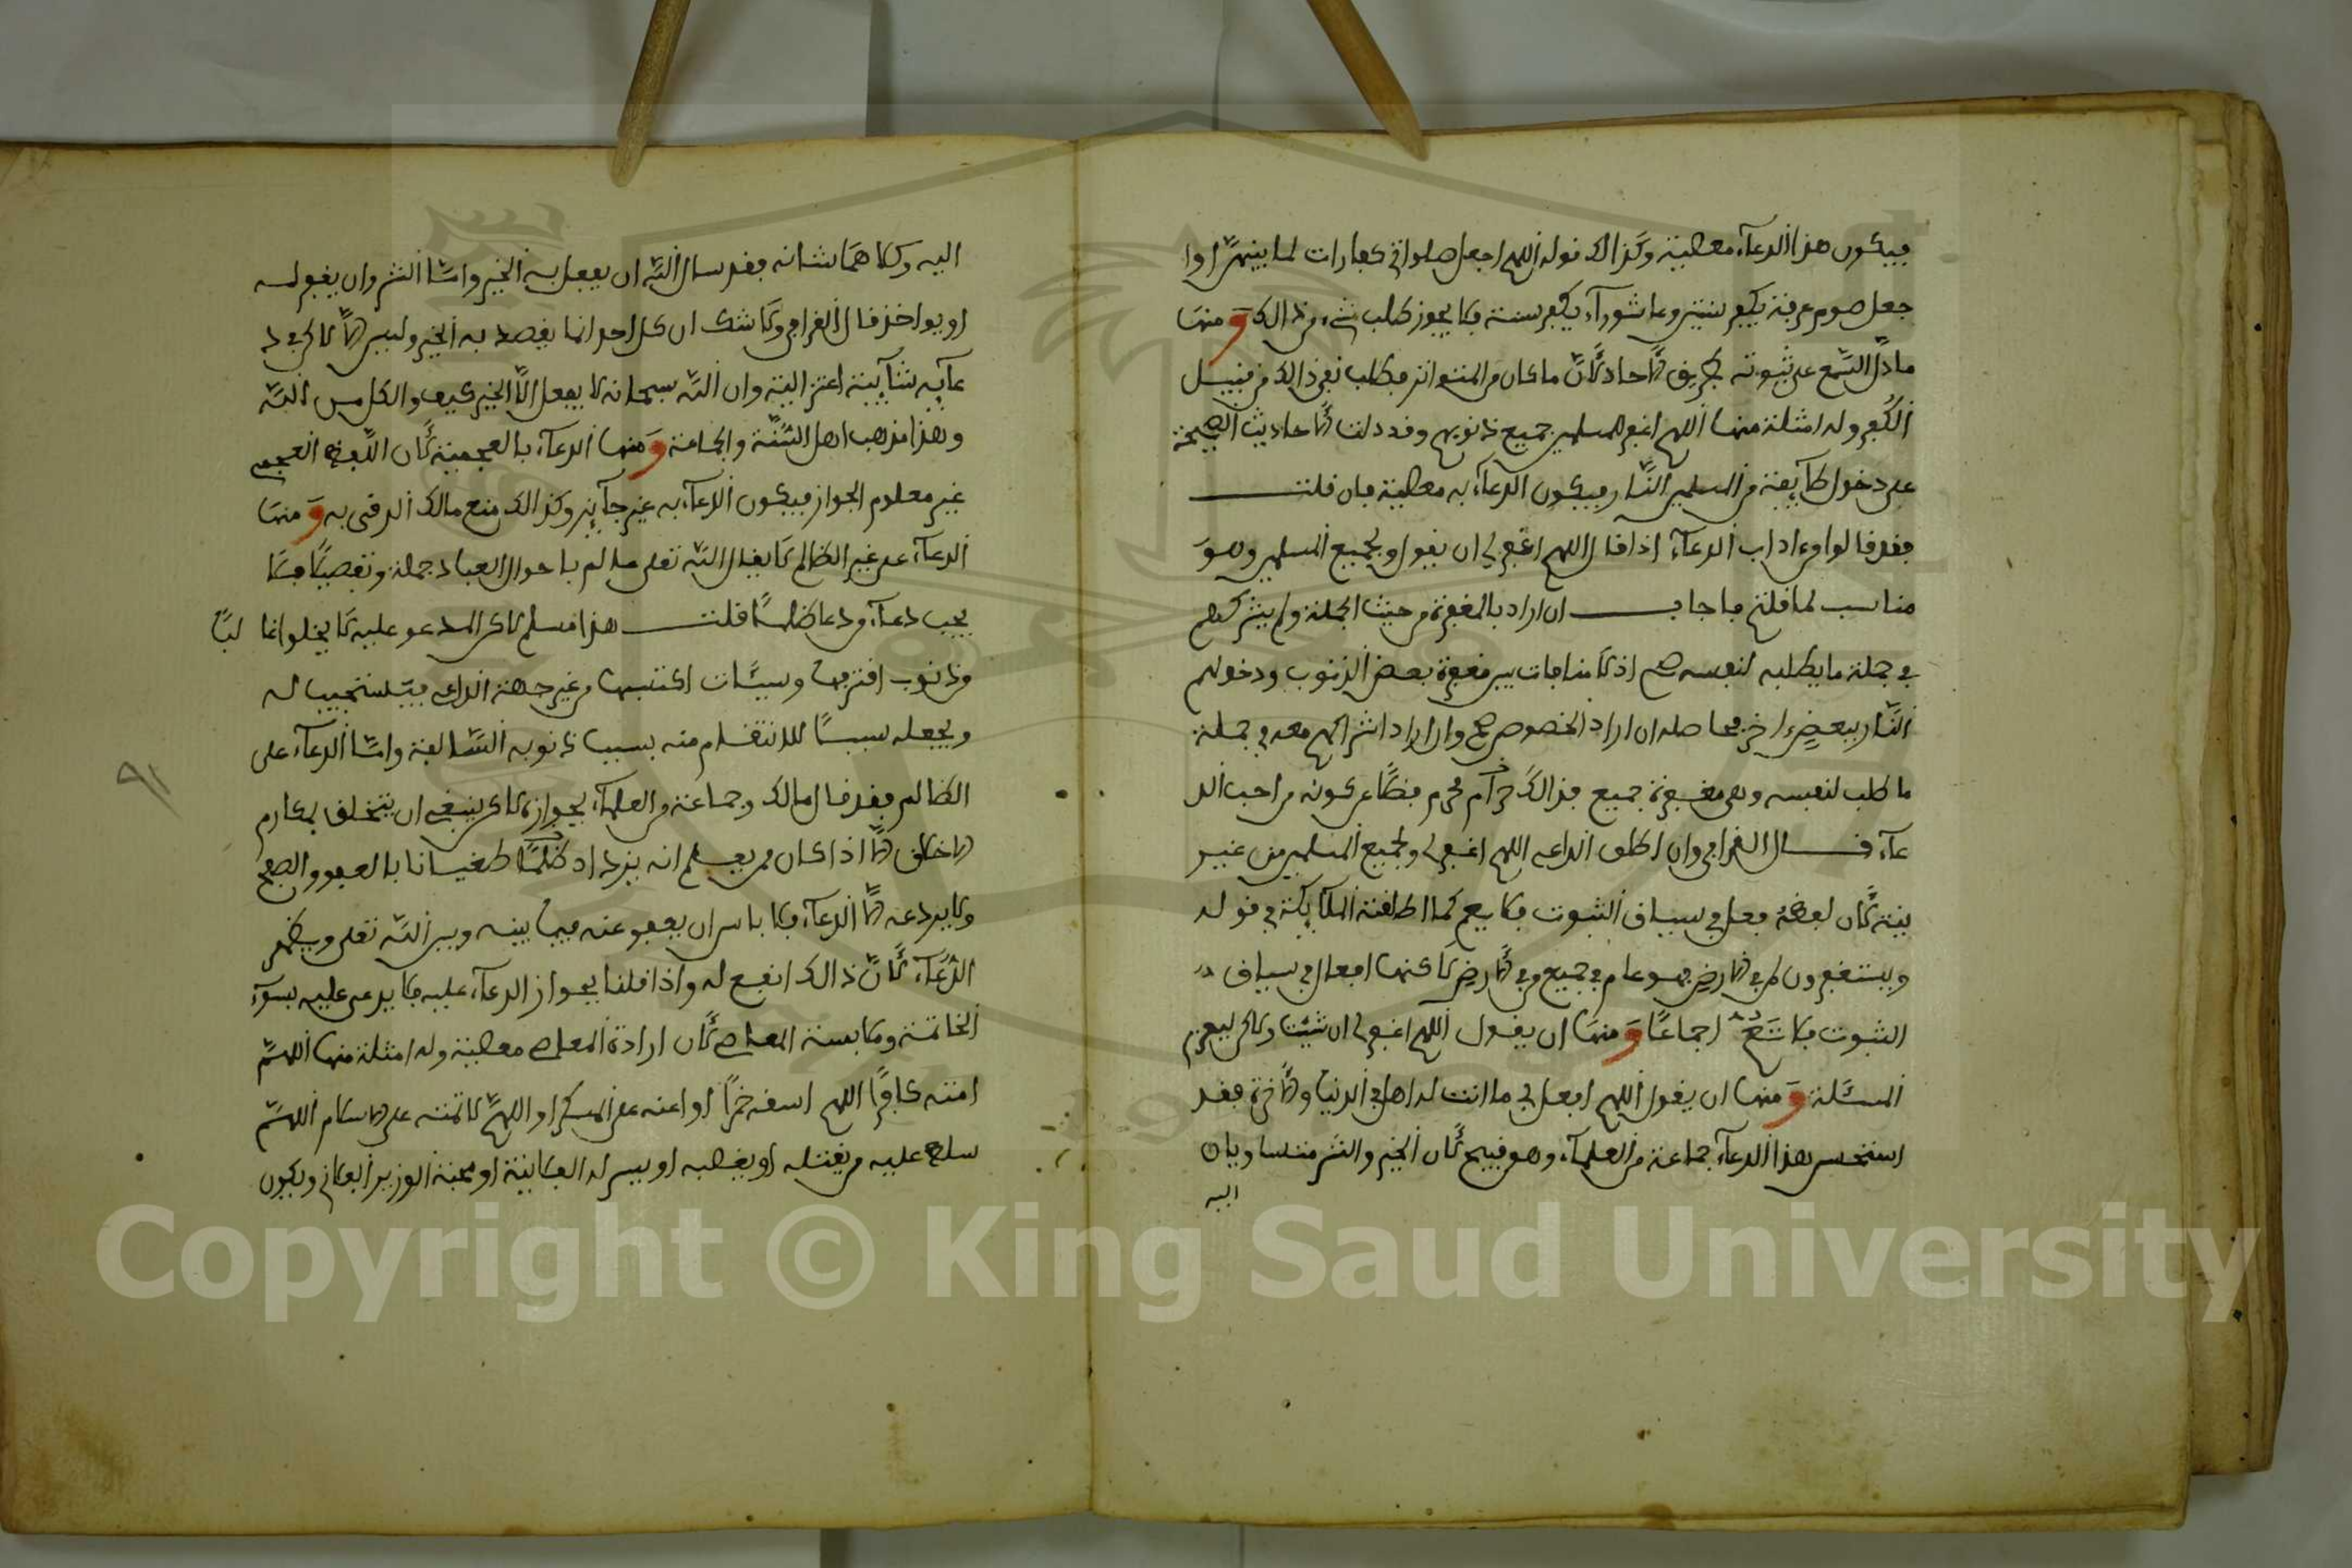 فيكون هذا الدعآء معصية وكذالك قوله اللهم اجعل صلواتي كفارات لما بينهن او ا
جعل صوم عرفة يكفر سنتين وعاشورآء يكفر سنة فلا يجوز طلب شيء من ذالك ومنها
ما دل السمع على ثبوته بطريق الاحاد لان ما كان من المتواتر فطلب نفي ذالك من قبيل
الكفر وله امثلة منها اللهم اغفر للمسلمين جميع ذنوبهم وقد دلت الاحاديث الصحيحة
على دخول طآئفة من المسلمين النار فيكون الدعآء به معصية فان قلت
فقد قالوا من اداب الدعآء اذا قال اللهم اغفر لي ان يقول ولجميع المسلمين وهو
مناسب لما قلته فاجاب ان اراد بالمغفرة من حيث الجملة ولم يشركهم
في جملة ما يطلبه لنفسه صح اذ لا منافات بين مغفرة بعض الذنوب ودخولهم
النار ببعض اخر فحاصله ان اراد الخصوص صح وان اراد اشراكهم معه في جملة
ما طلب لنفسه وهي مغفرة جميع فذالك حرام محرم فضلا عن كونه من احب الد
عآء قال القرافي وان اطلق الداعي اللهم اغفر لي ولجميع المسلمين من غير
نية لان لفظه فعل في سياق الثبوت فلا يعم كما اطلقته الملآئكة في قوله
ويستغفرون لمن في الارض فهو عام في جميع من في الارض لاكنها افعال في سياق
الثبوت فلا تعم اجماعا ومنها ان يقول اللهم اغفر لي ان شئت ولاكن ليعزم
المسئلة ومنها ان يقول اللهم افعل بي ما انت له اهل في الدنيا والاخرة فقد
استحسن هذا الدعآء جماعة من العلمآء وهو قبيح لان الخير والشر متساويان
اليه
اليه وكلاهما شانه فقد سال الله ان يفعل به الخير واما الشر وان يغفر له
او يواخذ قال القرافي ولا شك ان كل احد انما يقصد به الخير وليس الا لاكن في د
عآئه شآئبة اعتزالية وان الله سبحانه لا يفعل الا الخير كيف والكل من الله
وهذا مذهب اهل السنة والجماعة ومنها الدعآء بالعجمية لان اللفظ العجمي
غير معلوم الجواز فيكون الدعآء به غير جآئز وكذالك منع مالك الرقى به ومنها
الدعآء على غير الظالم لا يقال الله تعلى عالم باحوال العباد جملة وتفصيلا فلا
يجب دعآء من دعا ظلما قلت هذا مسلم لاكن المدعو عليه لا يخلوا غالبا
من ذنوب اقترفها وسيئات اكتسبها من غير جهة الداعي فيستجيب له
ويجعله سببا للانتقام منه بسبب ذنوبه السالفة واما الدعآء على
الظالم فقد قال مالك وجماعة من العلمآء بجوازه لاكن ينبغي ان يتخلق بمكارم
الاخلاق الا اذا كان ممن يعلم انه يزداد ظلما طغيانا بالعفو والصفح
ولا يردعه الا الدعآء فلا باس ان يعفو عنه فيما بينه وبين الله تعلى ويظهر
الدعآء لان ذالك انفع له واذا قلنا بجواز الدعآء عليه فلا يدعى عليه بسوء
الخاتمة وملابسة المعاصي لان ارادة المعاصي معصية وله امثلة منها اللهم
امته كافرا اللهم اسقه خمرا او اعنه على المسكر او اللهم لا تمته على الاسلام اللهم
سلط عليه من يقتله او يغصبه او يسر له الفلانية او محبة الوزير الفلاني ويكون
٩١
Copyright © King Saud University